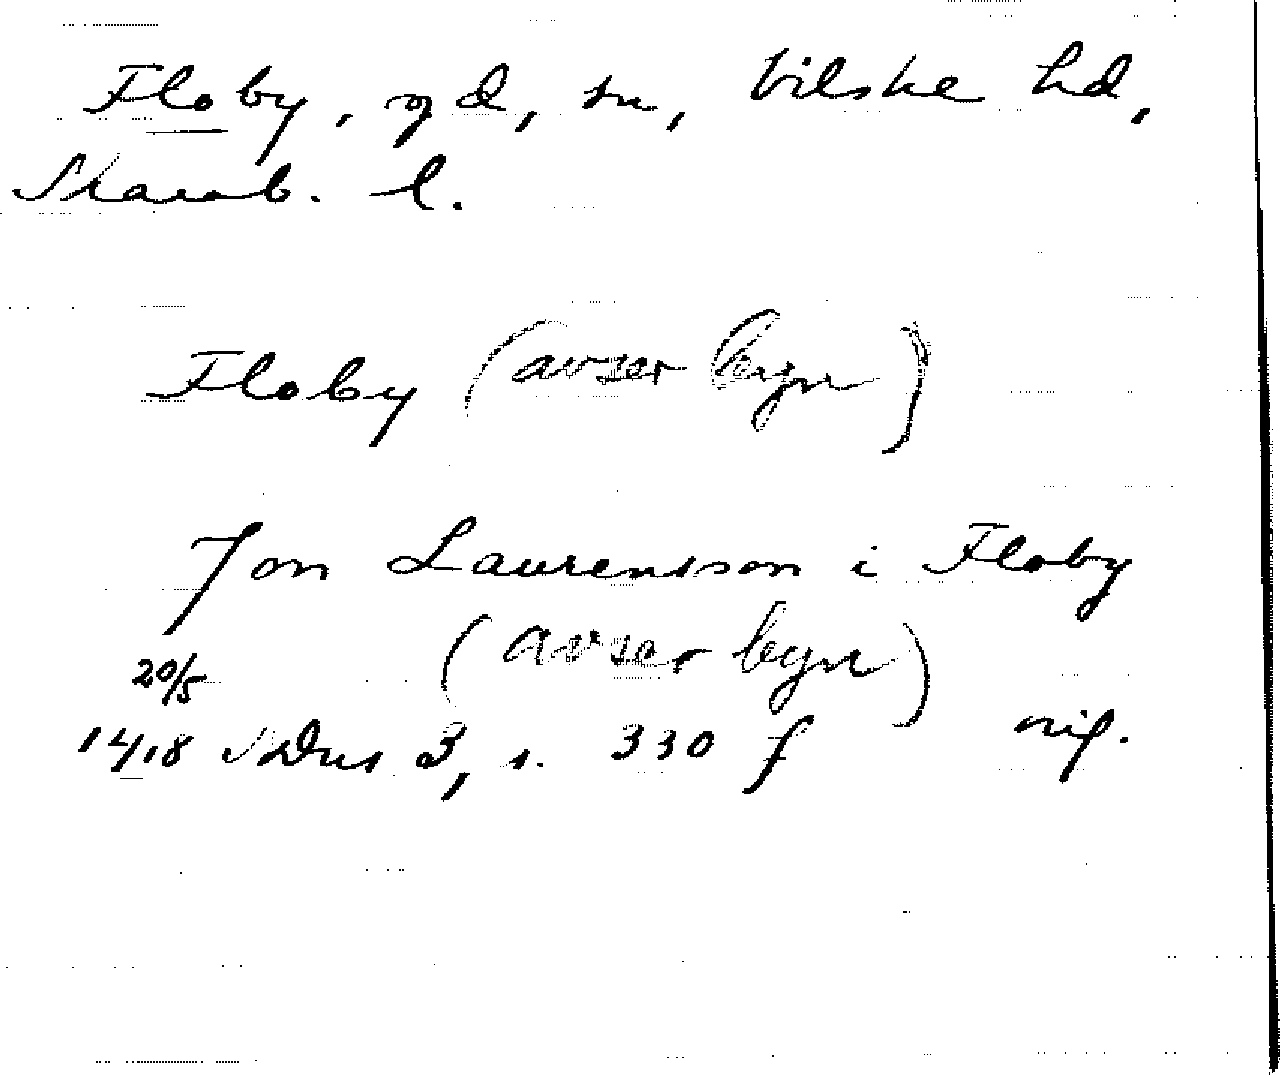 Floby, gd, sn, Vilske hd,
Skarab. l.
Floby (avser byn)
Jon Laurensson i Floby
(avser byn)
20/5
1418 SDns 3, s. 330 f